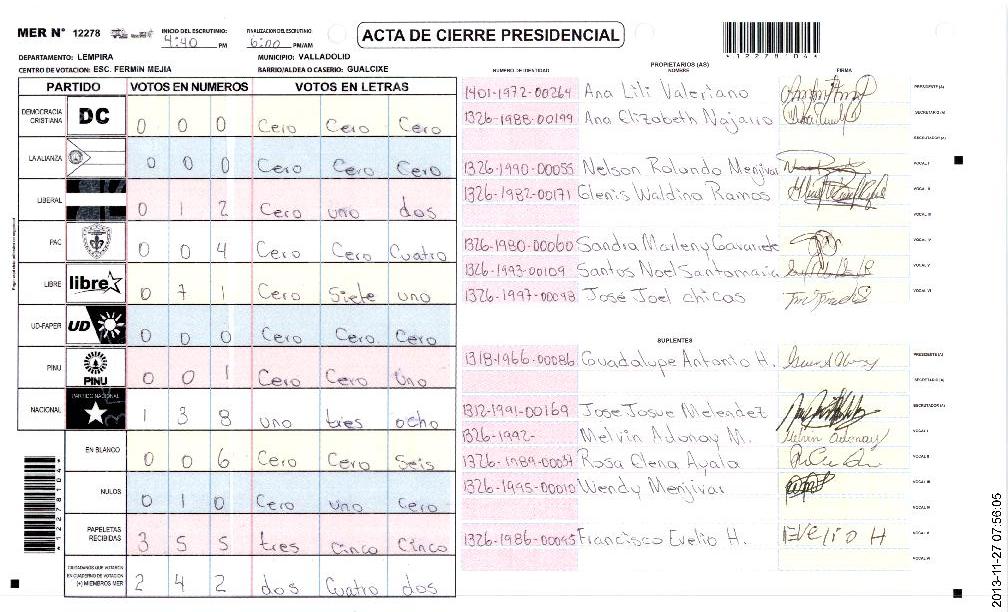 MER N° 12278 INICIO DEL ESCRUTINIO: 4:40 PM FINALIZACION DEL ESCRUTINIO: 6:00 PM/AM ACTA DE CIERRE PRESIDENCIAL
*12278104*
DEPARTAMENTO: LEMPIRA MUNICIPIO: VALLADOLID
CENTRO DE VOTACION: ESC. FERMIN MEJIA BARRIO/ALDEA O CASERIO: GUALCIXE
PARTIDO VOTOS EN NUMEROS VOTOS EN LETRAS
DEMOCRACIA CRISTIANA DC 0 0 0 Cero Cero Cero
LA ALIANZA 0 0 0 Cero Cero Cero
LIBERAL 0 1 2 Cero uno dos
PAC 0 0 4 Cero Cero Cuatro
LIBRE libre 0 7 1 Cero Siete uno
UD-FAPER UD 0 0 0 Cero Cero Cero
PINU PINU 0 0 1 Cero Cero Uno
NACIONAL PARTIDO NACIONAL 1 3 8 uno tres ocho
EN BLANCO 0 0 6 Cero Cero Seis
NULOS 0 1 0 Cero uno Cero
PAPELETAS RECIBIDAS 3 5 5 tres Cinco Cinco
CIUDADANOS QUE VOTARON EN CUADERNO DE VOTACION (+) MIEMBROS MER 2 4 2 dos Cuatro dos
*12278104*
PROPIETARIOS (AS)
NUMERO DE IDENTIDAD NOMBRE FIRMA
1401-1972-00264 Ana Lili Valeriano PRESIDENTE (A)
1326-1988-00199 Ana Elizabeth Najarro SECRETARIO (A)
ESCRUTADOR (A)
1326-1990-00055 Nelson Rolando Menjivar VOCAL I
1326-1982-00171 Glenis Waldina Ramos VOCAL II
VOCAL III
1326-1980-00060 Sandra Marleny Gavarrete VOCAL IV
1326-1993-00109 Santos Noel Santamaria VOCAL V
1326-1997-00098 Jose Joel chicas VOCAL VI
SUPLENTES
1318-1966-00086 Guadalupe Antonio H. PRESIDENTE (A)
SECRETARIO (A)
1312-1991-00169 Jose Josue Melendez ESCRUTADOR (A)
1326-1992- Melvin Adonay M. Melvin Adonay VOCAL I
Rosa Elena Ayala VOCAL II
1326-1995-00010 Wendy Menjivar VOCAL III
VOCAL IV
1326-1986-00095 Francisco Evelio H. Evelio H VOCAL V
VOCAL VI
2013-11-27 07:56:05